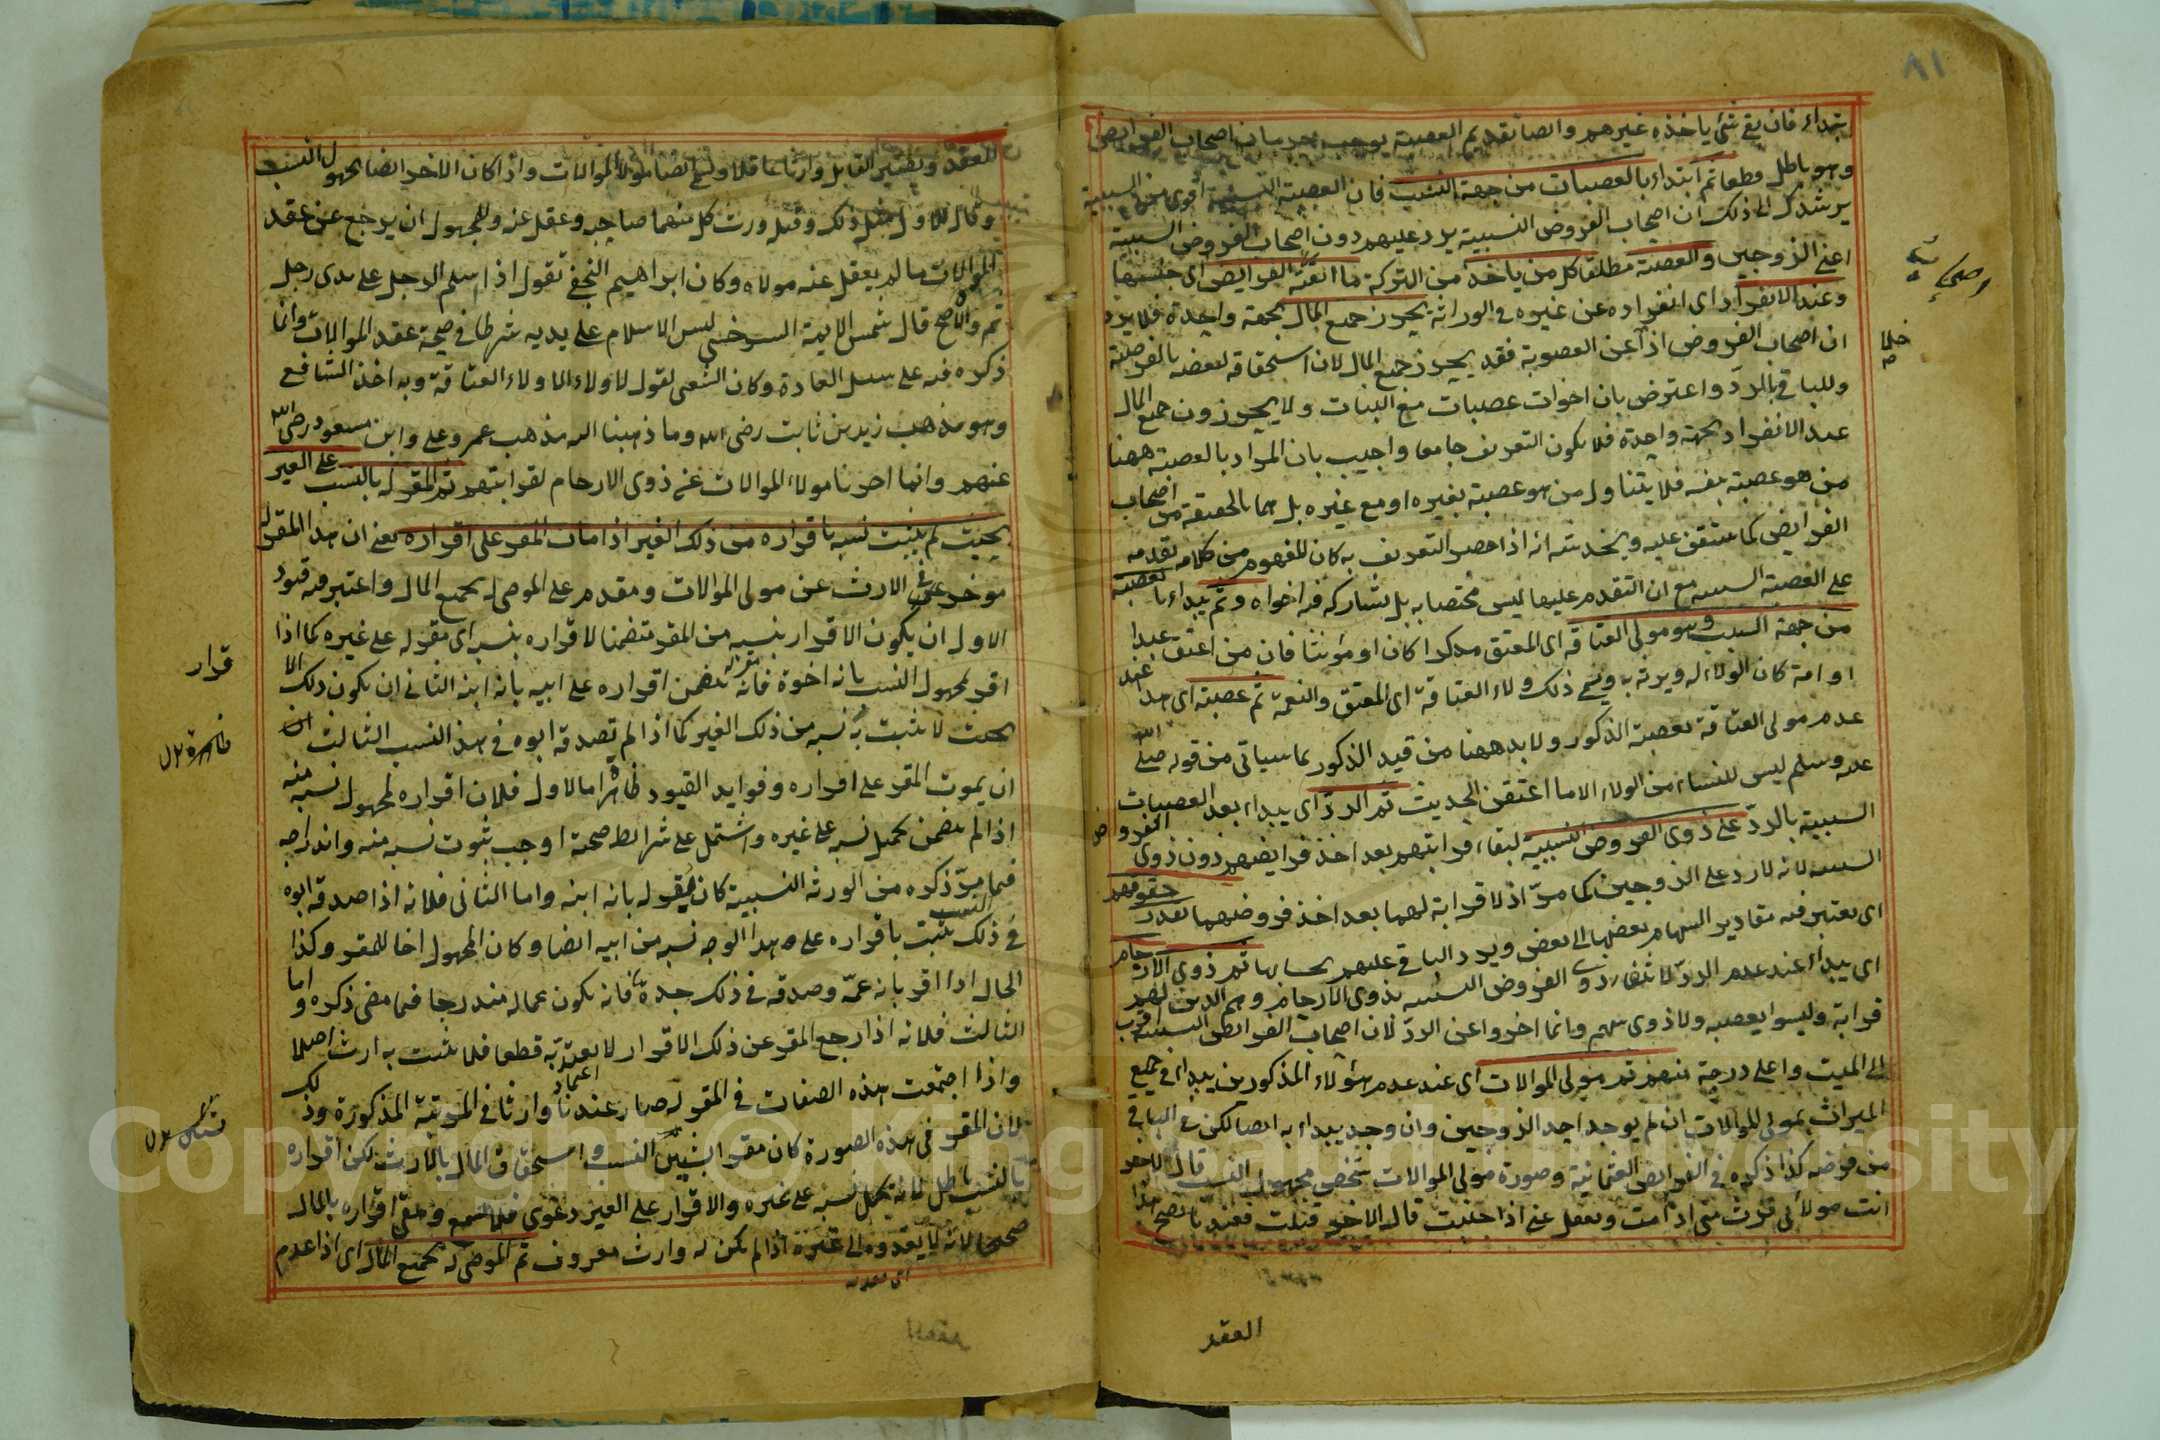 ٨١
ابتداء فان بقى شئ ياخذه غيرهم وايضا تقديم العصبة يوجب حرمان اصحاب الفرايض
وهو باطل قطعا ثم ابتداء بالعصبات من جهة النسب فان العصبة النسبية اقوى من السببية
يرشدك الى ذلك ان اصحاب الفروض النسبية يرد عليهم دون اصحاب الفروض السببية
اعنى الزوجين والعصبة مطلقا كل من ياخذ من التركة ما ابقته الفرايض اى جنسها
وعند الانفراد اى انفراده عن غيره فى الوراثة يحرز جميع المال بجهة واحدة فلا يرد
ان اصحاب الفروض اذا عن العصوبة فقد يحرز جميع المال لان استحقاقه لبعضه بالفرضية
وللباقى بالرد واعترض بان اخوات عصبات مع البنات ولا يحرزون جميع المال
عند الانفراد بجهة واحدة فلا يكون التعريف جامعا واجيب بان المراد بالعصبة ههنا
من هو عصبة بنفسه فلا يتناول من هو عصبة بغيره او مع غيره بل هما بالحقيقة من اصحاب
الفرايض كما ستقف عليه ويخدشه انه اذا خص التعريف به كان المفهوم من كلامه تقدمه
على العصبة السببية مع ان التقدم عليها ليس مختصا به بل يشاركه فيه اخواه وثم يبداء بالعصبة
من جهة السبب وهو مولى العتاقة اى المعتق مذكرا كان او مؤنثا فان من اعتق عبدا
او امة كان الولاء له ويرثه به ويسمى ذلك ولاء العتاقة اى المعتق والنعمة ثم عصبته اى عند
عدم مولى العتاقة بعصبته الذكور ولا بد ههنا من قيد الذكور لما سياتى من قوله صلى الله
عليه وسلم ليس للنساء من الولاء الا ما اعتقن الحديث ثم الرد اى يبداء بعد العصبات
السببية بالرد على ذوى الفروض النسبية لبقاء قرابتهم بعد اخذ فرايضهم دون ذوى الفروض
السببية لانه لا رد على الزوجين كما مر اذ لا قرابة لهما بعد اخذ فروضهما بقدر حقوقهم
اى يعتبر فيه مقادير السهام بعضها الى بعض ويرد الباقى عليهم بحسابها ثم ذوى الارحام
اى يبدأ عند عدم الرد لانتفاء ذوى الفروض النسبية بذوى الارحام وهم الذين لهم
قرابة وليسوا بعصبة ولا ذوى سهم وانما اخروا عن الرد لان اصحاب الفرايض النسبية اقرب
الى الميت واعلى درجة منهم ثم مولى الموالات اى عند عدم هؤلاء المذكورين يبداء فى جميع
الميراث بمولى الموالات ان لم يوجد احد الزوجين وان وجد يبداء به ايضا لكن فى الباقى
من فرضه كذا ذكره فى الفرايض العثمانية وصورة مولى الموالات شخص مجهول النسب قال لاخر
انت مولائى ترث منى اذا مت وتعقل عنى اذا جنيت قال الاخر قبلت فعندنا يصح هذا
العقد
العقد ويصير القابل وارثا عاقلا ويسمى ايضا مولى الموالات واذا كان الاخر ايضا مجهول النسب
وقال للاول مثل ذلك وقبله ورث كل منهما صاحبه وعقل عنه وللمجهول ان يرجع عن عقد
الموالات ما لم يعقل عنه مولاه وكان ابراهيم النخعى يقول اذا اسلم الرجل على يدى رجل
ثم والاه صح قال شمس الايمة السرخسى ليس الاسلام على يديه شرطا فى صحة عقد الموالات وانما
ذكره فيه على سبيل العادة وكان الشعبى يقول لا ولاء الا ولاء العتاقة وبه اخذ الشافعى
وهو مذهب زيد بن ثابت رضى الله وما ذهبنا اليه مذهب عمر وعلى وابن مسعود رضى الله
عنهم وانما اخرنا مولاء الموالات عن ذوى الارحام لقرابتهم ثم المقر له بالنسب على الغير
بحيث لم يثبت نسبه باقراره من ذلك الغير اذا مات المقر على اقراره يعنى ان هذا المقر له
موخر فى الارث عن مولى الموالات ومقدم على الموصى له بجميع المال واعتبر فيه قيود
الاول ان يكون الاقرار بنسبه من المقر متضمنا لاقراره بنسبه اى مقوله على غيره كما اذا
اقر لمجهول النسب بانه اخوه فانه يتضمن اقراره على ابيه بانه ابنه الثانى ان يكون ذلك الا
بحيث لا يثبت به نسبه من ذلك الغير كما اذا لم يصدقه ابوه فى هذا النسب الثالث ان
ان يموت المقر على اقراره وفوايد القيود ظاهرة اما الاول فلان اقراره لمجهول نسبه منه
اذا لم يتضمن تحميل نسبه على غيره واشتمل على شرائط صحته اوجب ثبوت نسبه منه واندراجه
فيما مر ذكره من الورثة النسبية كان يقر له بانه ابنه واما الثانى فلانه اذا صدقه ابوه
فى ذلك النسب يثبت باقراره على هذا الوجه نسبه من ابيه ايضا وكان المجهول اخا للمقر وكذا
الحال اذا اقر بانه عمه وصدقه فى ذلك جده فانه يكون عما له مندرجا فيما مضى ذكره واما
الثالث فلانه اذا رجع المقر عن ذلك الاقرار لا يعتد به قطعا فلا يثبت به ارث اصلا
واذا اجتمعت هذه الصفات فى المقر له صار عندنا وارثا فى المرتبة المذكورة وذلك
لان المقر فى هذه الصورة كان مقرا بشيئين النسب واستحقاق المال بالارث لكن اقراره
بالنسب باطل لانه تحميل نسبه على غيره والاقرار على الغير دعوى فلا تسمع وبقى اقراره بالمال
صحيحا لانه لا يعدوه الى غيره اذا لم يكن له وارث معروف ثم الموصى له بجميع المال اى اذا عدم
قرار
ظاهرة
Copyright © King Saud University